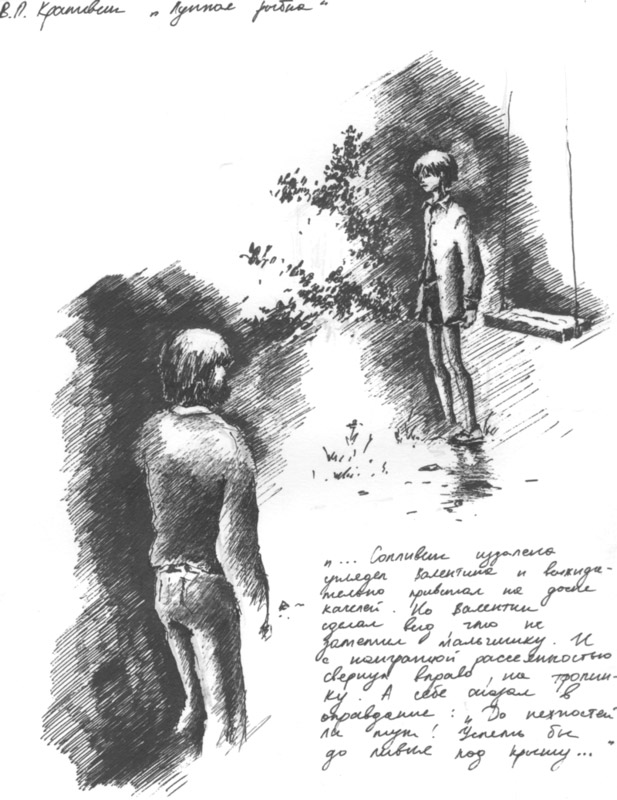 В.П. Крапивин „Лунная рыбка"
„... Сопливик издалека
углядел Валентина и выжида-
тельно привстал на доске
качелей. Но Валентин
сделал вид что не
заметил мальчишку. И
с наигранной рассеянностью
свернул вправо, на тропин-
ку. А себе сказал в
оправдание: „До нежностей
ли тут! Успеть бы
до ливня под крышу..."